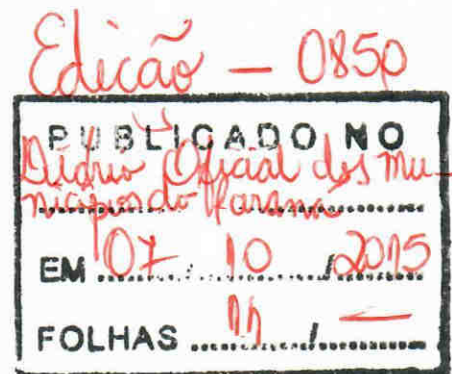 Edição - 0850
PUBLICADO NO
Diário Oficial dos Mu-
nicípios do Paraná
EM 07 / 10 / 2015
FOLHAS 11 / —